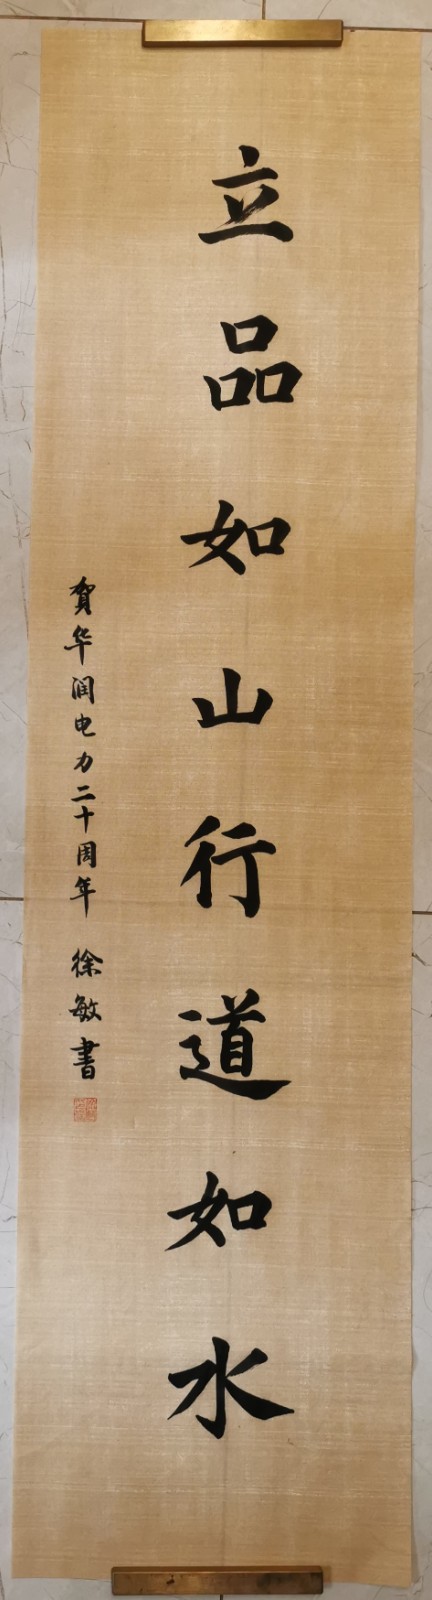 立品如山行道如水
贺华润电力二十周年 徐敏書